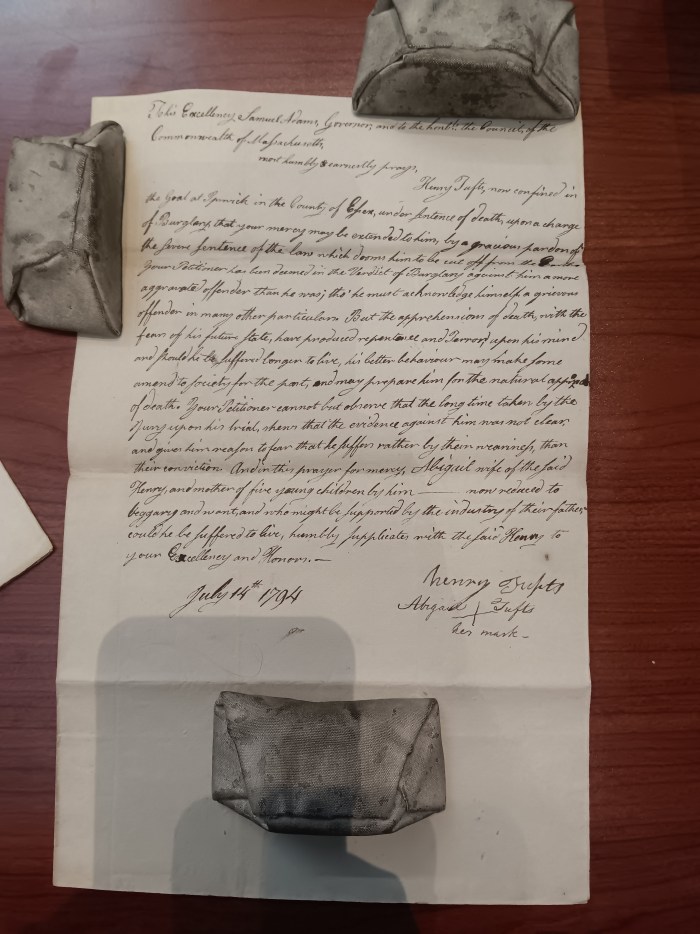 To his Excellency, Samuel Adams, Governor, and to the honble. the Council, of the
Commonwealth of Massachusetts,
most humbly & earnestly prays,
Henry Tufts, now confined in
the Goal at Ipswich in the County of Essex, under sentence of death, upon a charge
of Burglary, that your mercy may be extended to him, by a gracious pardon of
the severe sentence of the law which dooms him to be cut off from the
Your Petitioner has been deemed in the Verdict of Burglary against him a more
aggravated offender than he was; tho' he must acknowledge himself a grievous
offender in many other particulars. But the apprehensions of death, with the
fears of his future state, have produced repentance and Terror upon his mind
and should he be suffered longer to live, his better behaviour may make some
amend to society for the past, and may prepare him for the natural approach
of death. Your Petitioner cannot but observe that the long time taken by the
Jury upon his trial, shews that the evidence against him was not clear,
and gives him reason to fear that he suffers rather by their weariness, than
their conviction. And in this prayer for mercy, Abigail wife of the said
Henry, and mother of five young children by him — now reduced to
beggary and want, and who might be supported by the industry of their father,
could he be suffered to live, humbly supplicates with the said Henry to
your Excellency and Honors. —
July 14th 1794
Henry Tufts
Abigail Tufts
her mark -